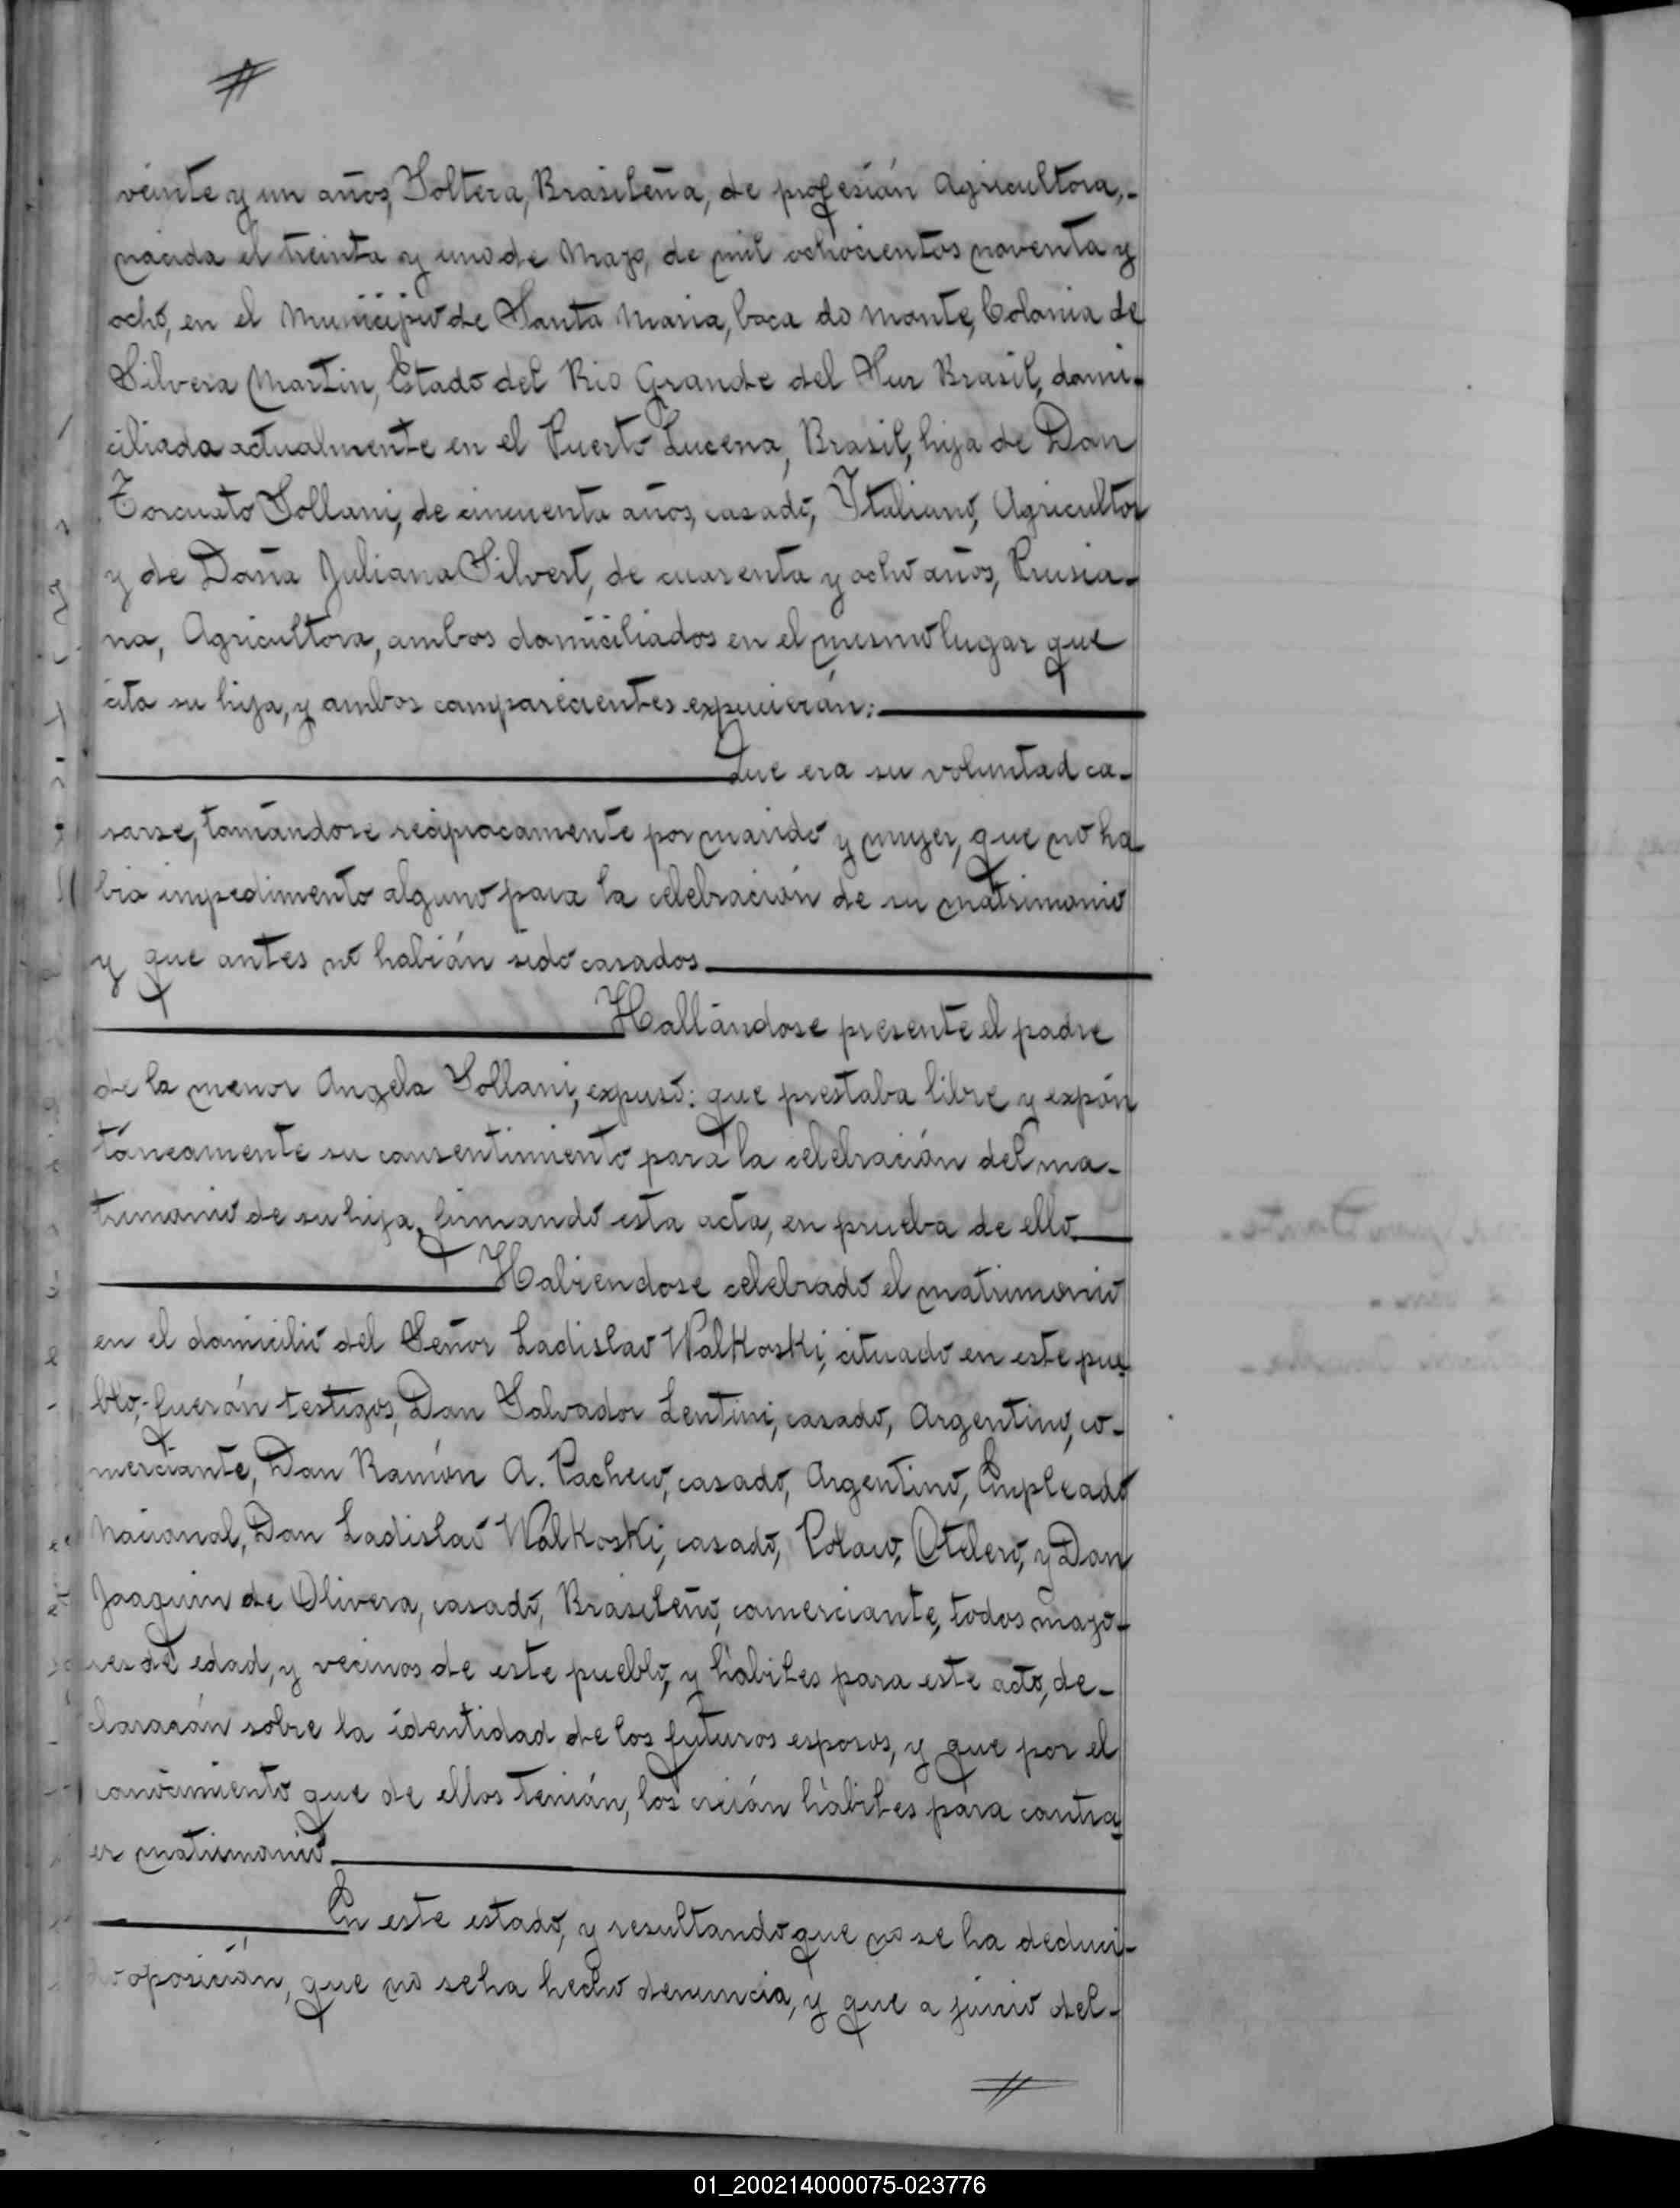 veinte y un años, Soltera, Brasileña, de profesián Agricultora,-
nacida el treinta y uno de Mayo, de mil ochocientos noventa y
ocho, en el Municipio de Santa Maria, boca do monte, Colonia de
Silvera Martin, Estado del Rio Grande del Sur Brasil, domi-
ciliada actualmente en el Puerto Lucena, Brasil, hija de Don
Torcuato Sollani, de cincuenta años, casado, Italiano, Agricultor
y de Doña Juliana Silvert, de cuarenta y ocho años, Prusia-
na, Agricultora, ambos domiciliados en el mismo lugar que
cita su hija, y ambos comparecientes expucierán:
Que era su voluntad ca-
sarse, tomándose reciprocamente por marido y muger, que no ha
bia impedimento alguno para la celebración de su matrimonio
y que antes no habián sido casados
Hallándose presente el padre
de la menor Angela Sollani, expuso: que prestaba libre y expón
táneamente su consentimiento para la celebración del ma-
trimonio de su hija, firmando esta acta, en prueba de ello.
Habiendose celebrado el matrimonio
en el domicilio del Señor Ladislao Walkoski, cituado en este pue
blo,- fuerón testigos, Don Salvador Lentini, casado, Argentino, co-
merciante, Don Ramón A. Pacheco, casado, Argentino, Empleado
Nacional, Don Ladislao Walkoski, casado, Polaco, Otelero, y Don
Joaquin de Olivera, casado, Brasileño, comerciante, todos mayo-
res de edad, y vecinos de este pueblo, y hàbiles para este acto, de-
clararán sobre la identidad de los futuros esposos, y que por el
conocimiento que de ellos tenián, los creián hàbiles para contra
er matrimonio
En este estado, y resultando que no se ha deduci-
do oposición, que no se ha hecho denuncia, y que a juicio del-
01_200214000075-023776